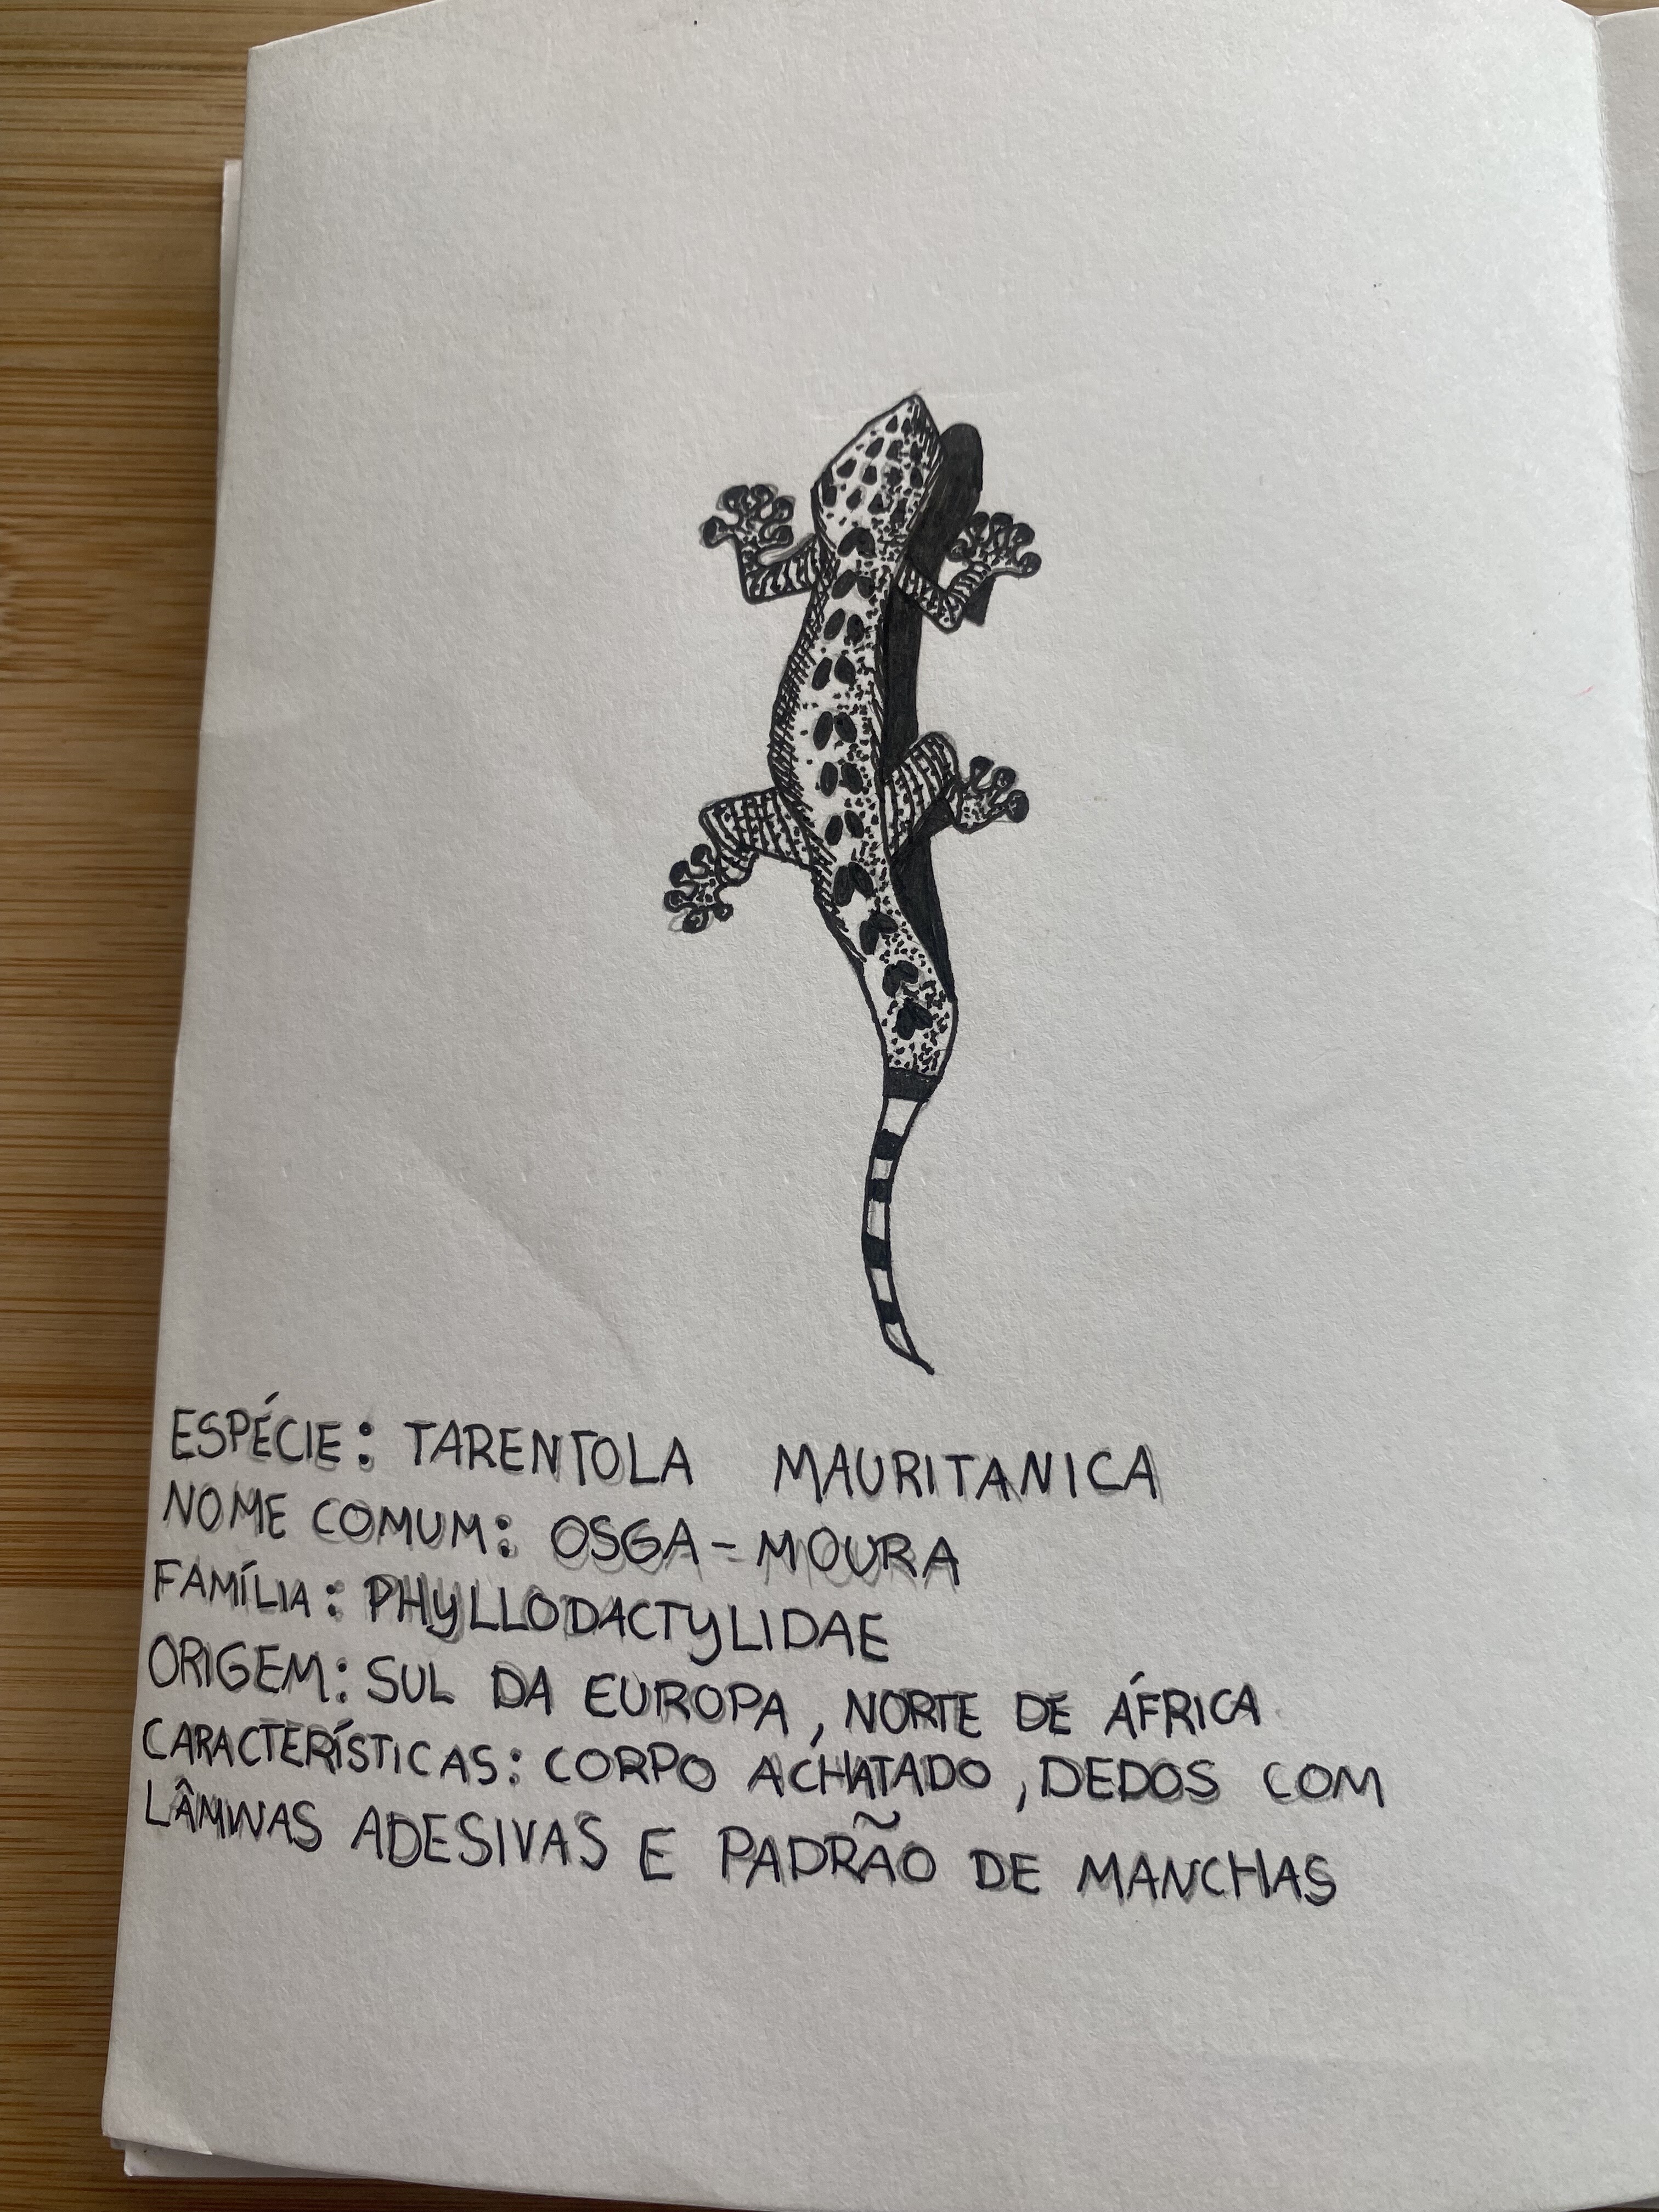 ESPÉCIE: TARENTOLA MAURITANICA
NOME COMUM: OSGA-MOURA
FAMÍLIA: PHYLLODACTYLIDAE
ORIGEM: SUL DA EUROPA, NORTE DE ÁFRICA
CARACTERÍSTICAS: CORPO ACHATADO, DEDOS COM
LÂMINAS ADESIVAS E PADRÃO DE MANCHAS